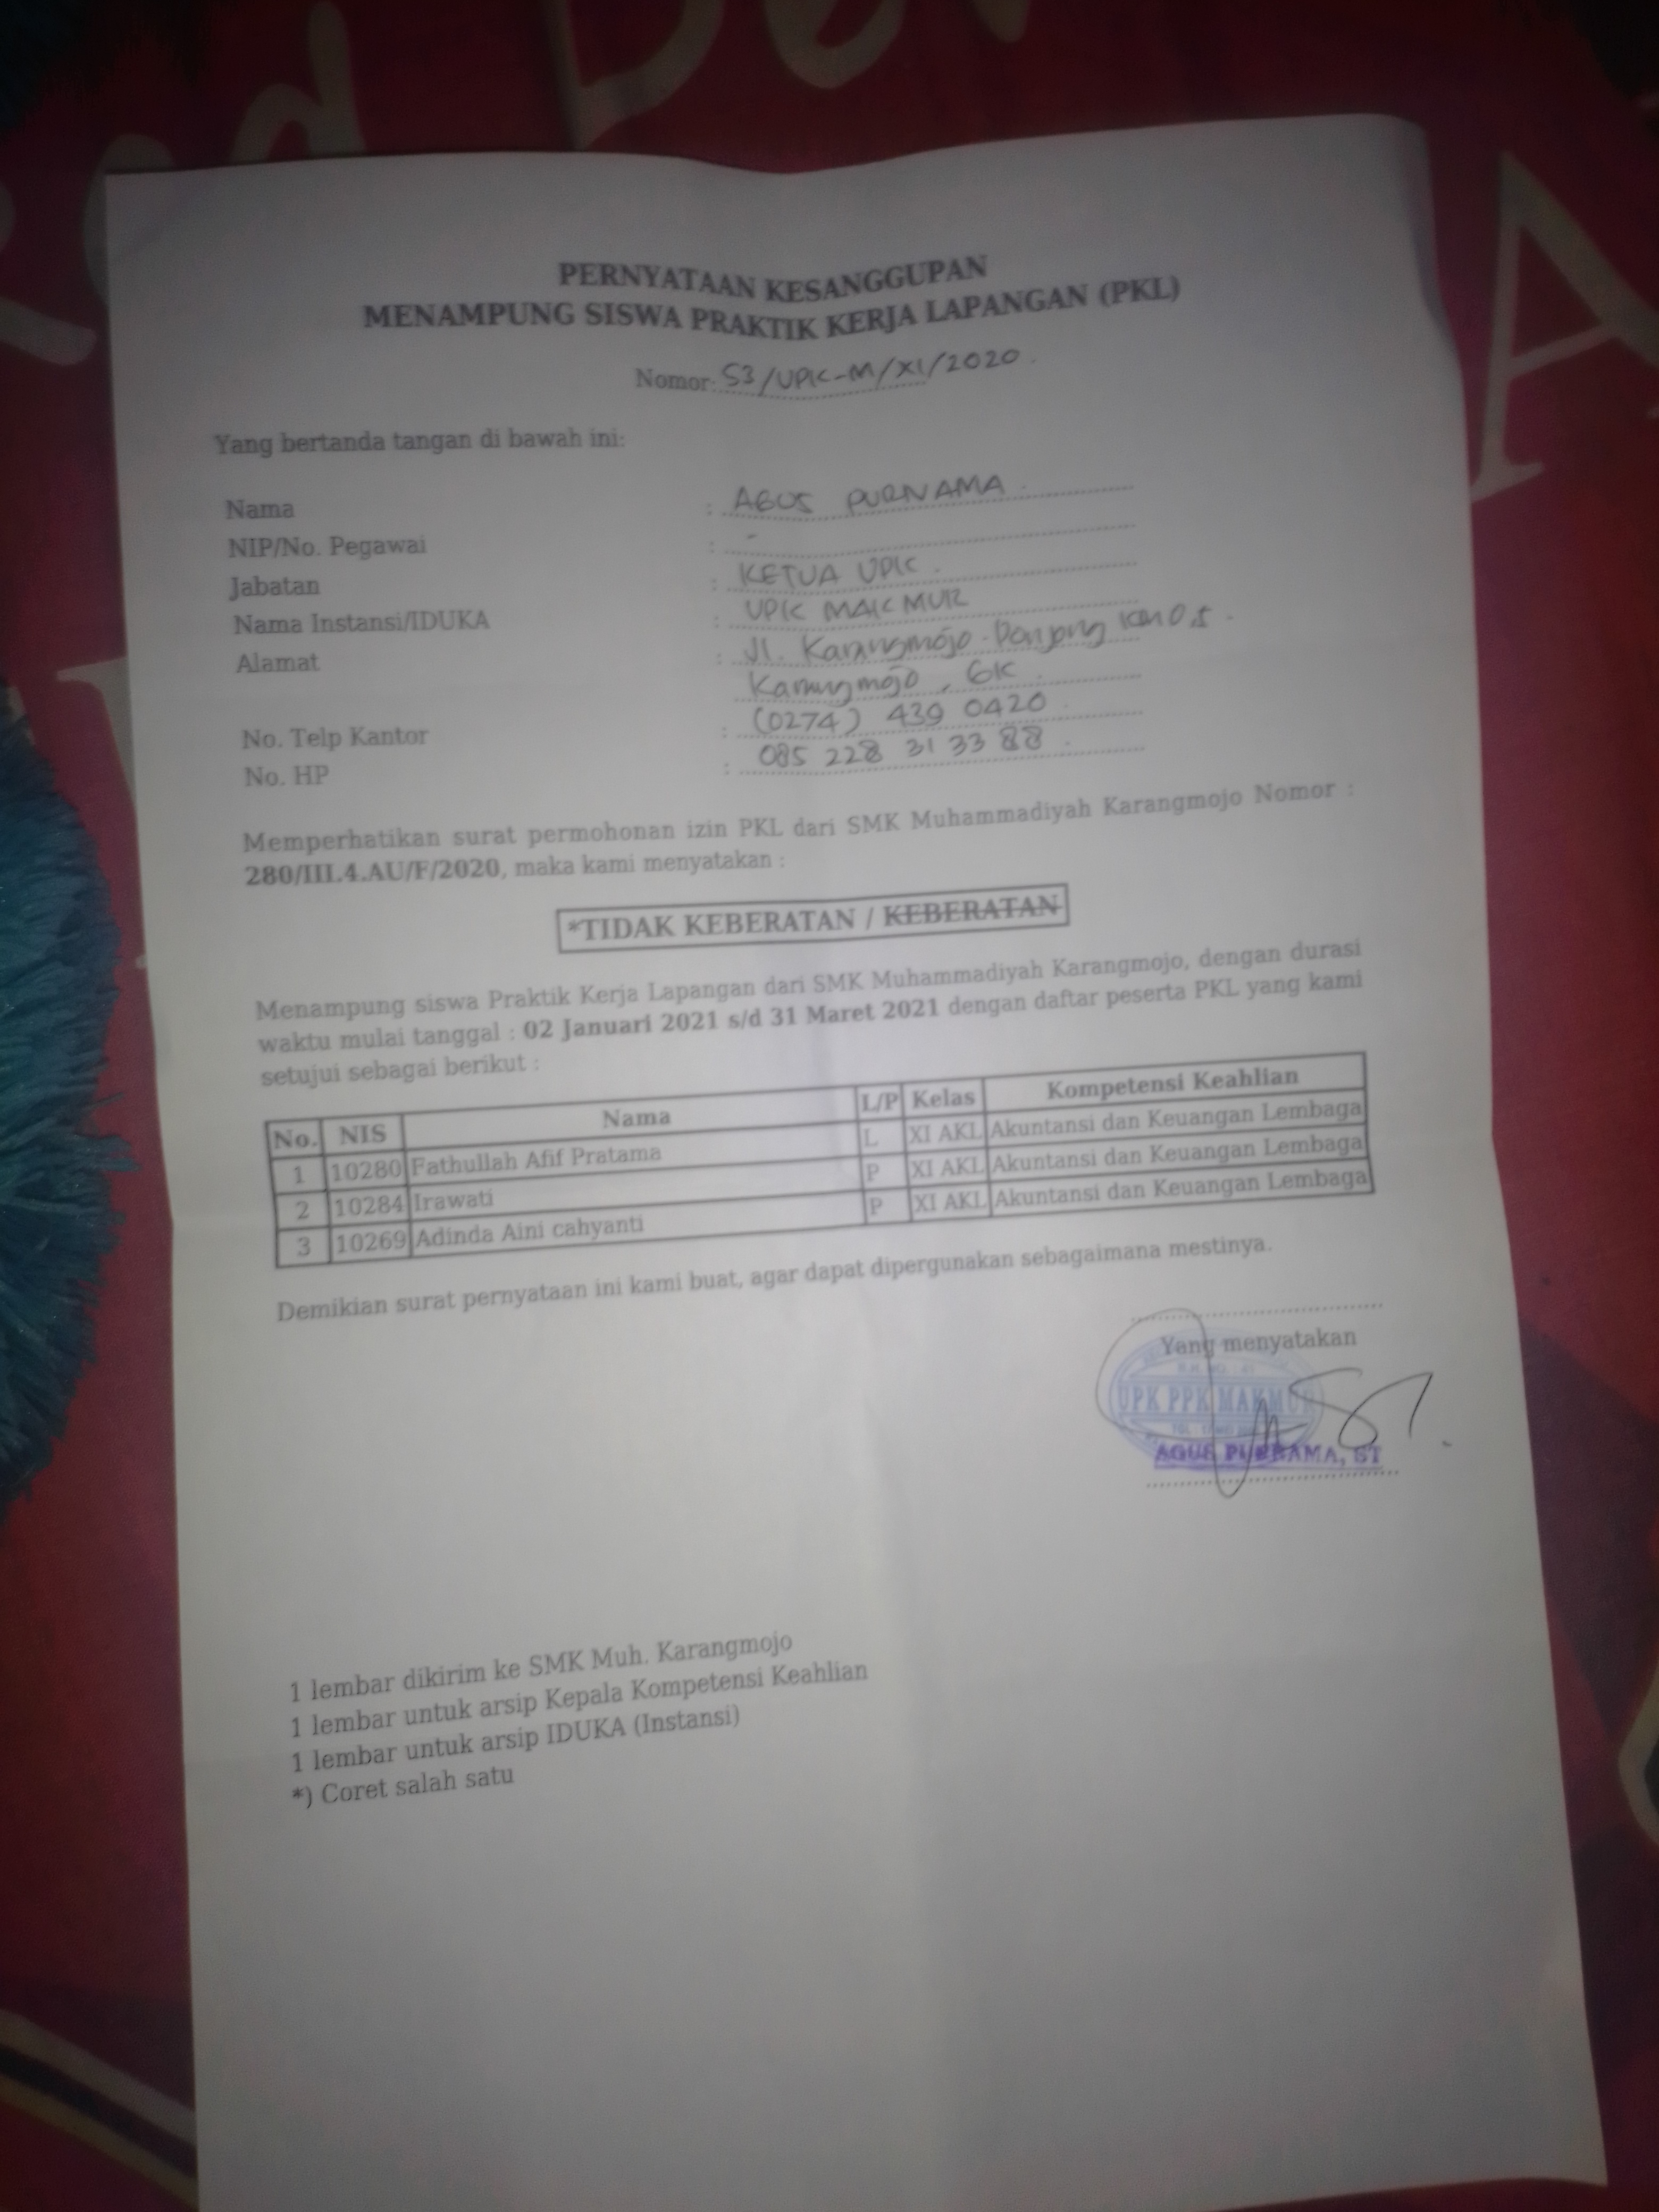 PERNYATAAN KESANGGUPAN
MENAMPUNG SISWA PRAKTIK KERJA LAPANGAN (PKL)
Nomor: 53/UPK-M/XI/2020.
Yang bertanda tangan di bawah ini:
Nama : AGUS PURNAMA
NIP/No. Pegawai : -
Jabatan : KETUA UPK.
Nama Instansi/IDUKA : UPK MAKMUR
Alamat : Jl. Karangmojo-Ponjong KM 0,5.
Karangmojo, GK.
No. Telp Kantor : (0274) 439 0420
No. HP : 085 228 31 33 88
Memperhatikan surat permohonan izin PKL dari SMK Muhammadiyah Karangmojo Nomor :
280/III.4.AU/F/2020, maka kami menyatakan :
*TIDAK KEBERATAN / KEBERATAN
Menampung siswa Praktik Kerja Lapangan dari SMK Muhammadiyah Karangmojo, dengan durasi
waktu mulai tanggal : 02 Januari 2021 s/d 31 Maret 2021 dengan daftar peserta PKL yang kami
setujui sebagai berikut :
No. NIS Nama L/P Kelas Kompetensi Keahlian
1 10280 Fathullah Afif Pratama L XI AKL Akuntansi dan Keuangan Lembaga
2 10284 Irawati P XI AKL Akuntansi dan Keuangan Lembaga
3 10269 Adinda Aini cahyanti P XI AKL Akuntansi dan Keuangan Lembaga
Demikian surat pernyataan ini kami buat, agar dapat dipergunakan sebagaimana mestinya.
Yang menyatakan
UPK PPK MAKMUR
AGUS PURNAMA, ST
1 lembar dikirim ke SMK Muh. Karangmojo
1 lembar untuk arsip Kepala Kompetensi Keahlian
1 lembar untuk arsip IDUKA (Instansi)
*) Coret salah satu